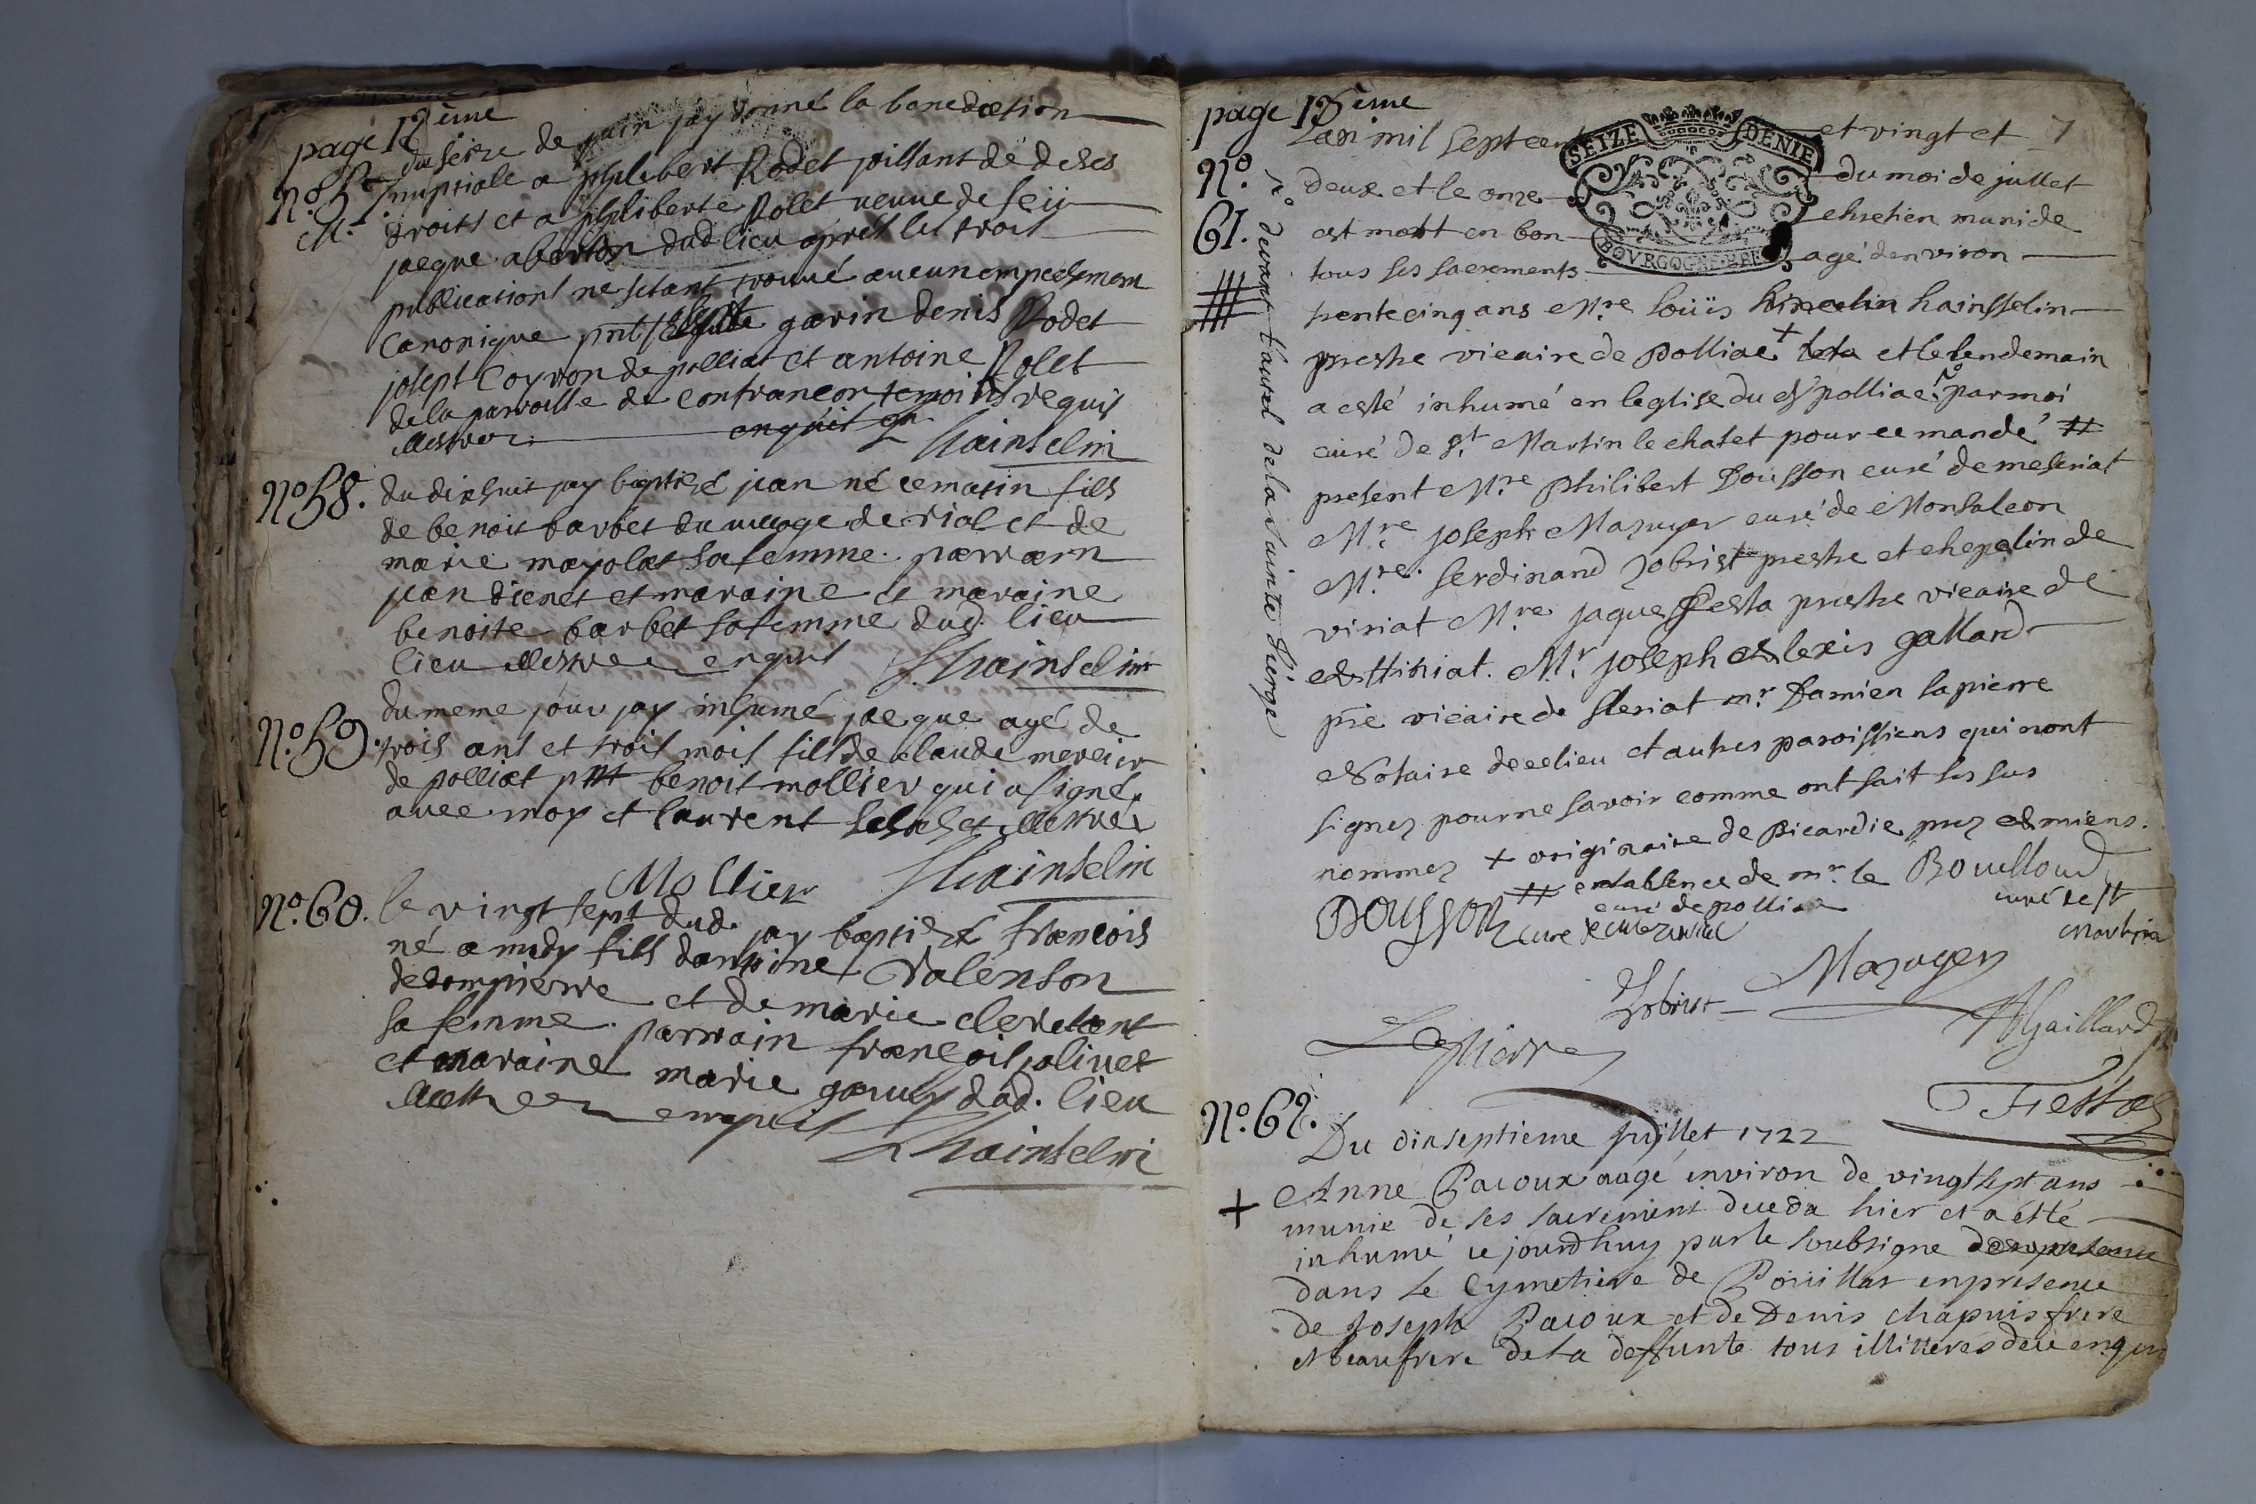 page 12ème
du seize de juin jay donné la banediction
No. 57. nuptiale a philibert Rodet joissant de de ses
M. droits et a philiberte Rolet veuve de feu
jacque aberton dud lieu apres les trois
publications ne sétant trouvé aucun empechemem
Canonique pnt garin denis Rodet
josept Coyron de polliat et antoine Rolet
de la parroisse de Confrancon temoins requis
illestrez enquis
hainselin
No 58. du dixhuit jay baptizé jean né ce matin fils
de benoit barbet du village de riol et de
marie mayolat sa femme. parrain
jean dienet et maraine et maraine
benoite barbet sa femme dud. lieu
lieu illestrez enquis Lhainselin
No. 59. du meme jour jay inhumé jacque agé de
trois ans et trois mois fils de claude mercier
de polliat pnt benoit mollier qui a signé
avec moy et laurent illestrez
Mollier Lhainselin
No. 60. le vingt sept dud. jay baptizé francois
né a midy fils dantoine Valenson
de dompierre et de marie clerc
sa femme. parrain françois jolivet
et maraine marie garuy dud. lieu
enquis
Lhainselin
page 13ème
Lan mil sept cent et vingt et 7
SEIZE DENIE
BOVRGOGNE
No. 61. deux et le onze du moi de jullet
est mort en bon chretien muni de
tous ses sacrements agé denviron
trente cinq ans Mre loüis hincelin hainsselin
prestre vicaire de Polliac + et le lendemain
a esté inhumé en leglise du dt polliac ro par moi
curé de St Martin le chatet pour ce mandé #
present Mre Philibert Dousson curé de meseriat
Mre joseph Mazuyer curé de Monfaleon
Mre ferdinand Zobrist prestre et chepelin de
viriat Mre jaques Festa prestre vicaire de
Attiniat. Mr joseph Alexis gallard
pre vicaire de fleriat mr Damien lapierre
Notaire de ce lieu et autres paroissiens qui nont
signez pour ne savoir comme ont fait les sus
nommez + originaire de Picardie prez Amiens.
# en labsence de mr le curé de polliac
ro devant l'autel de la sainte Vierge
Bouilloud curé de St martin
Dousson curé de mezeriat
Mazuyer
Zobrist
Lapierre
AGaillard
Festaz
No. 62. Du dixseptieme juillet 1722
+ Anne Pacoux aagé environ de vingt sept ans
munie de ses sacrement deceda hier et a esté
inhumé ce jourdhuy par le soubsigne
dans le Cymetiere de Poüillat en presence
de Joseph Pacoux et de Denis chapuis frere
et beaufrere de la deffunte tous illitteres de ce enquis